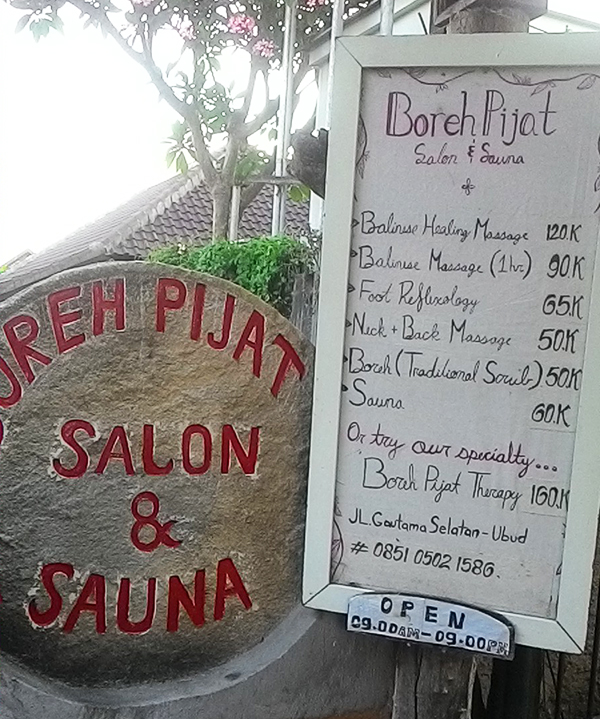 BOREH PIJAT
SALON
&
SAUNA
Boreh Pijat
Salon & Sauna
Balinese Healing Massage 120.K
Balinese Massage (1hr) 90K
Foot Reflexology 65K
Neck + Back Massage 50K
Boreh (Traditional Scrub) 50K
Sauna 60K
Or try our specialty...
Boreh Pijat Therapy 160.K
JL.Goutama Selatan - Ubud
# 0851 0502 1586.
OPEN
09.00AM-09.00PM